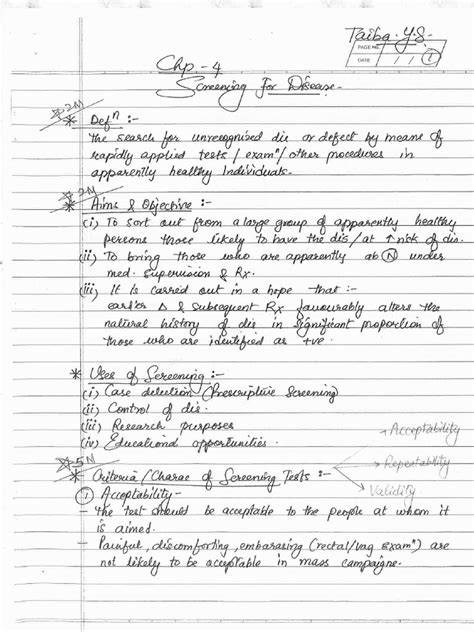 Taiba.Y.S.
PAGE NO.
DATE / / ①
Chp.-4
Screening For Disease.
2M
* Defⁿ :-
The search for unrecognised dis or defect by means of
rapidly applied tests / examⁿ / other procedures in
apparently healthy Individuals.
2M
* Aims & Objective :-
(i) To sort out from a large group of apparently healthy
persons those likely to have the dis / at ↑ risk of dis.
(ii) To bring those who are apparently ab Ⓝ under
med. supervision & Rx.
(iii) It is carried out in a hope that :-
earlier Δ & subsequent Rx favourably alters the
natural history of dis in significant proportion of
those who are identified as +ve.
* Uses of Screening :-
(i) Case detection (Prescriptive Screening)
(ii) Control of dis.
(iii) Research purposes
(iv) Educational opportunities.
→ Acceptability
5M
* Criteria / Charac of Screening Tests :-
→ Repeatability
→ Validity
① Acceptability -
- The test should be acceptable to the people at whom it
is aimed.
- Painful, discomforting, embarasing (rectal/vag Examⁿ) are
not likely to be acceptable in mass campaigne.